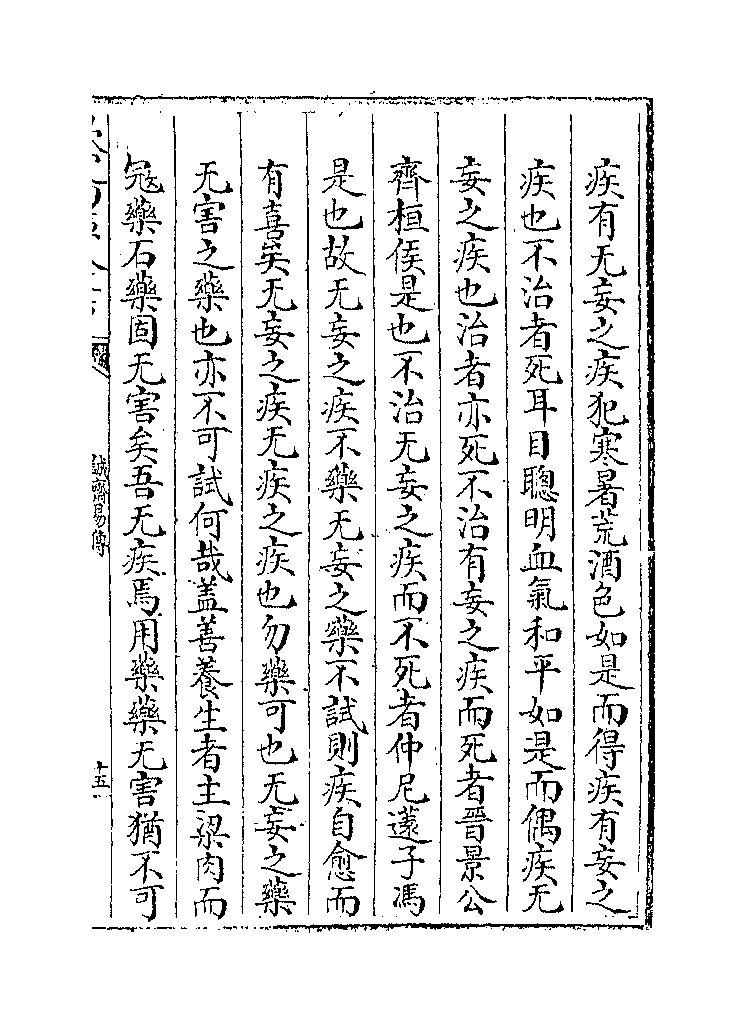 疾有无妄之疾犯寒暑荒酒色如是而得疾有妄之
疾也不治者死耳目聰明血氣和平如是而偶疾无
妄之疾也治者亦死不治有妄之疾而死者晉景公
齊桓侯是也不治无妄之疾而不死者仲尼薳子馮
是也故无妄之疾不藥无妄之藥不試則疾自愈而
有喜矣无妄之疾无疾之疾也勿藥可也无妄之藥
无害之藥也亦不可試何哉蓋善養生者主粱肉而
冦藥石藥固无害矣吾无疾焉用藥藥无害猶不可
誠齋易傳
十五